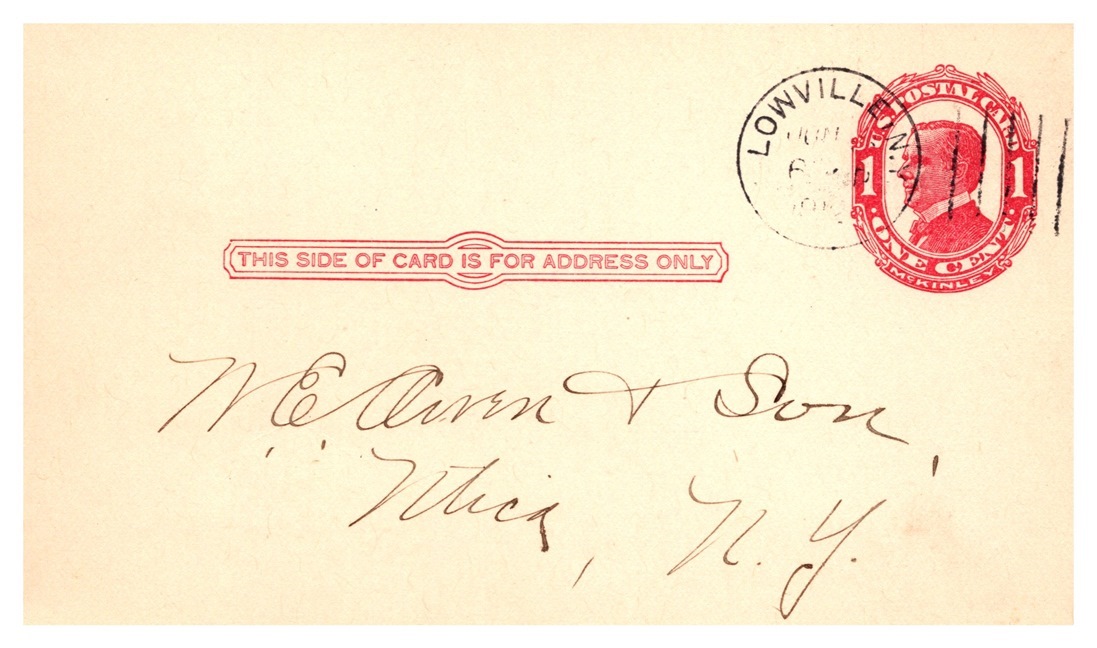 LOWVILLE N.Y.
JUN
6
U.S. POSTAL CARD
1 1
ONE CENT
McKINLEY
THIS SIDE OF CARD IS FOR ADDRESS ONLY
W. E. Owen & Son,
Utica, N.Y.